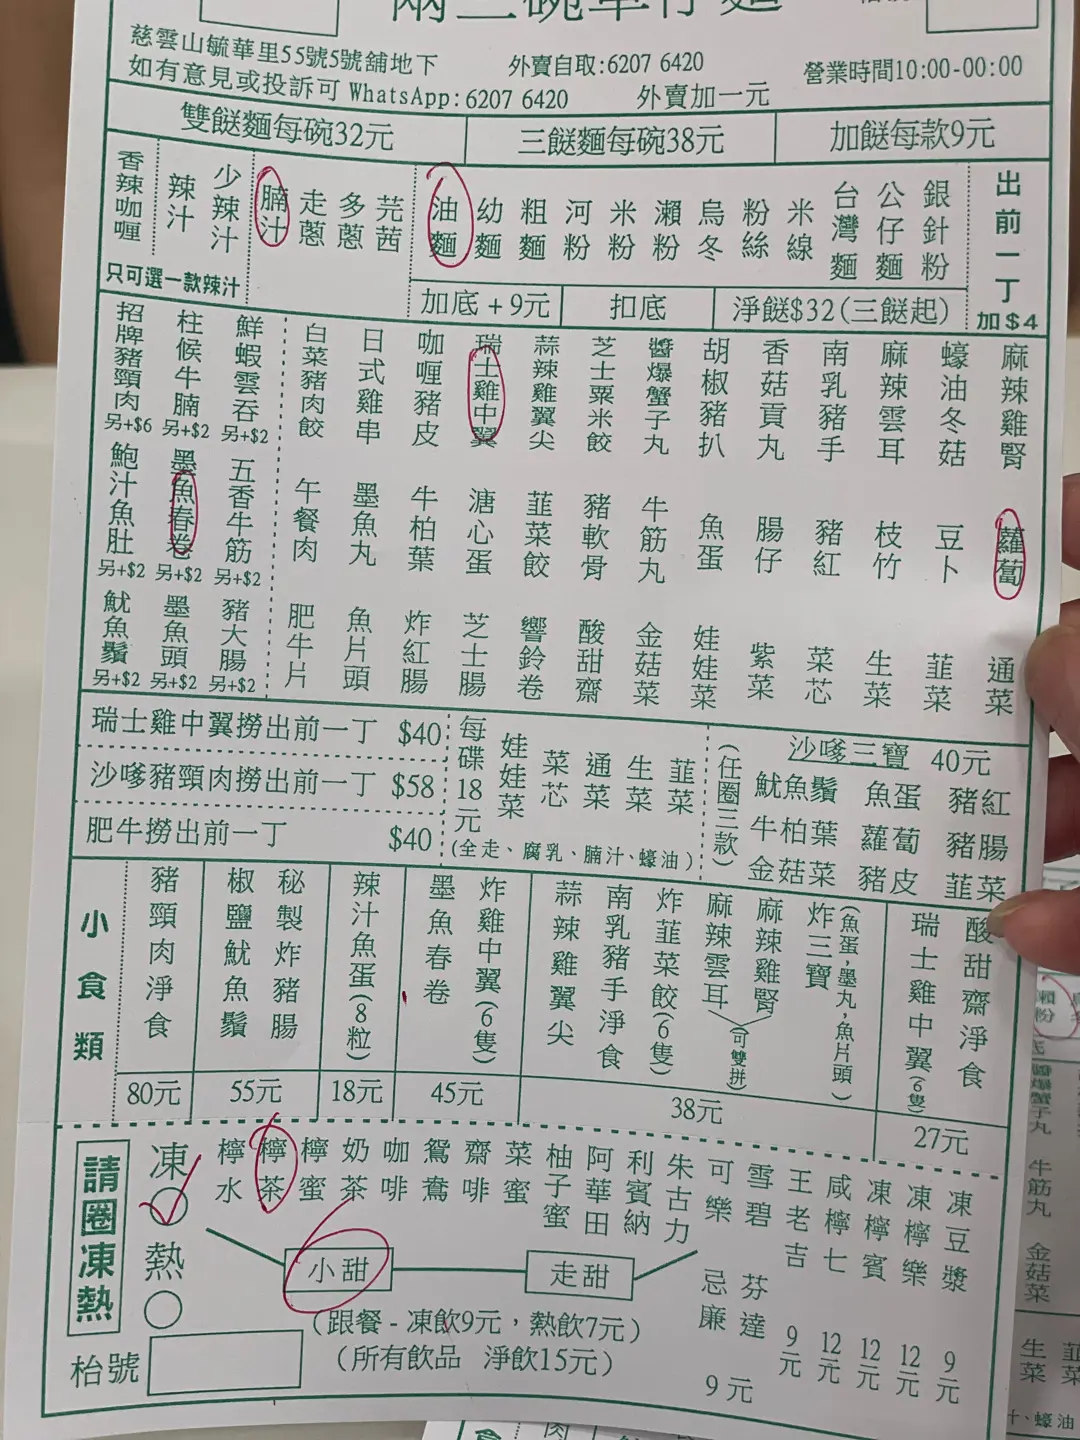 兩三碗車仔麵
慈雲山毓華里55號5號舖地下
外賣自取:6207 6420
營業時間10:00-00:00
如有意見或投訴可 WhatsApp:6207 6420
外賣加一元
雙餸麵每碗32元
三餸麵每碗38元
加餸每款9元
香辣咖喱
辣汁
少辣汁
只可選一款辣汁
腩汁
走蔥
多蔥
芫茜
油麵
幼麵
粗麵
河粉
米粉
瀨粉
烏冬
粉絲
米線
台灣麵
公仔麵
銀針粉
出前一丁
加$4
加底+9元
扣底
淨餸$32(三餸起)
招牌豬頸肉
另+$6
柱候牛腩
另+$2
鮮蝦雲吞
另+$2
白菜豬肉餃
日式雞串
咖喱豬皮
瑞士雞中翼
蒜辣雞翼尖
芝士粟米餃
醬爆蟹子丸
胡椒豬扒
香菇貢丸
南乳豬手
麻辣雲耳
蠔油冬菇
麻辣雞腎
鮑汁魚肚
另+$2
墨魚春卷
另+$2
五香牛筋
另+$2
午餐肉
墨魚丸
牛柏葉
溏心蛋
韮菜餃
豬軟骨
牛筋丸
魚蛋
腸仔
豬紅
枝竹
豆卜
蘿蔔
魷魚鬚
另+$2
墨魚頭
另+$2
豬大腸
另+$2
肥牛片
魚片頭
炸紅腸
芝士腸
響鈴卷
酸甜齋
金菇菜
娃娃菜
紫菜
菜芯
生菜
韮菜
通菜
瑞士雞中翼撈出前一丁 $40
沙嗲豬頸肉撈出前一丁 $58
肥牛撈出前一丁 $40
每碟18元
娃娃菜
菜芯
通菜
生菜
韮菜
(全走、腐乳、腩汁、蠔油)
(任圈三款)
沙嗲三寶 40元
魷魚鬚 魚蛋 豬紅
牛柏葉 蘿蔔 豬腸
金菇菜 豬皮 韮菜
小食類
豬頸肉淨食
80元
椒鹽魷魚鬚
秘製炸豬腸
55元
辣汁魚蛋(8粒)
18元
墨魚春卷
炸雞中翼(6隻)
45元
蒜辣雞翼尖
南乳豬手淨食
炸韮菜餃(6隻)
麻辣雲耳
麻辣雞腎
(可雙拼)
炸三寶
(魚蛋,墨丸,魚片頭)
38元
瑞士雞中翼(6隻)
酸甜齋淨食
27元
請圈凍熱
凍
熱
檸水
檸茶
檸蜜
奶茶
咖啡
鴛鴦
齋啡
菜蜜
柚子蜜
阿華田
利賓納
朱古力
可樂
雪碧
忌廉
芬達
9元
王老吉
9元
咸檸七
12元
凍檸賓
12元
凍檸樂
12元
凍豆漿
9元
小甜
走甜
(跟餐 - 凍飲9元,熱飲7元)
(所有飲品 淨飲15元)
枱號
瀨粉
牛筋丸
金菇菜
生菜